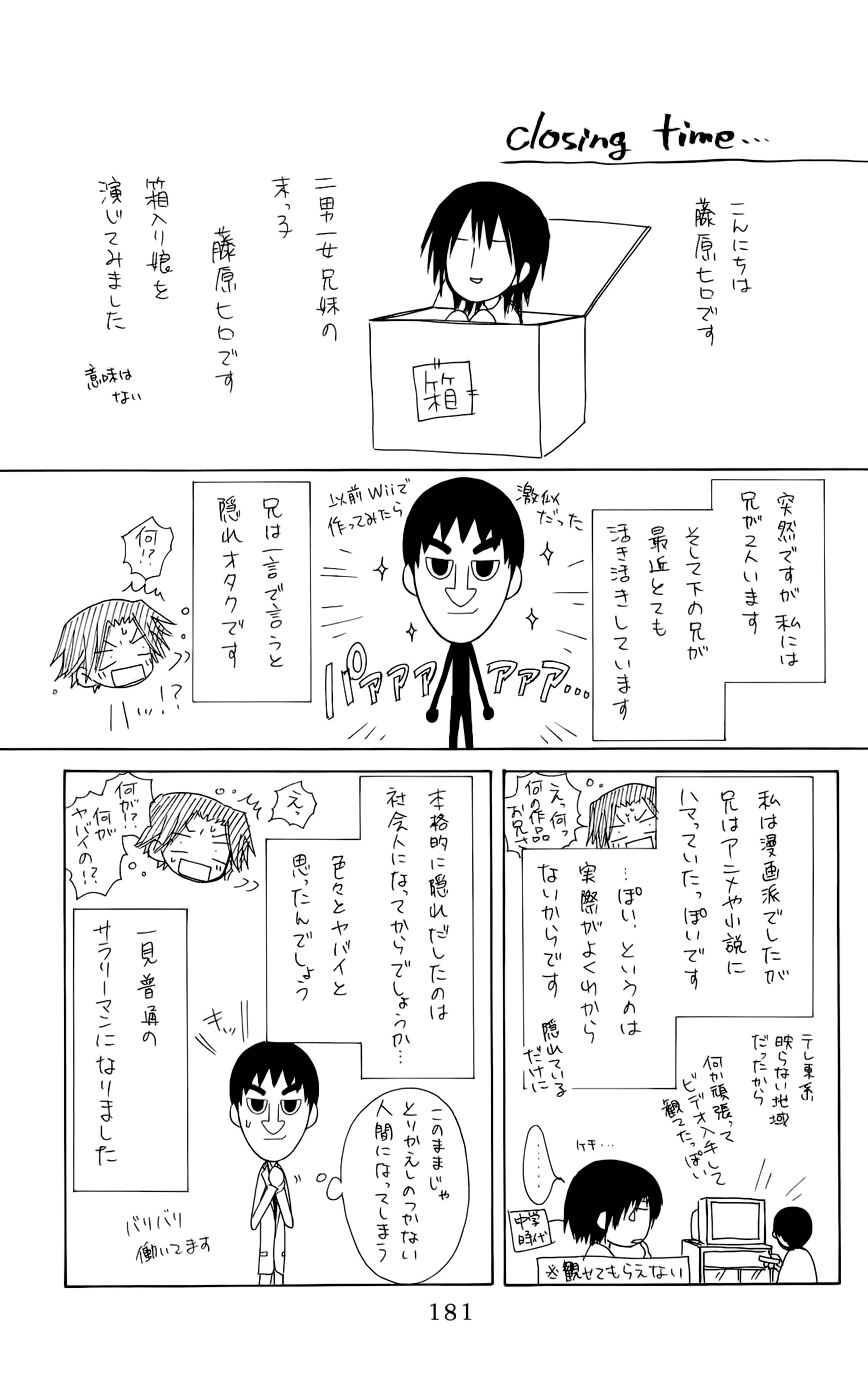 closing time…
こんにちは
藤原ヒロです
二男一女兄妹の
末っ子
藤原ヒロです
箱入り娘を
演じてみました
意味は
ない
箱
突然ですが私には
兄が2人います
そして下の兄が
最近とても
活き活きしています
激似
だった
以前Wiiで
作ってみたら
パァァァァァァ…
兄は一言で言うと
隠れオタクです
何!?
ハッ…!?
私は漫画派でしたが
兄はアニメや小説に
ハマっていたっぽいです
…ぽい、というのは
実際がよくわから
ないからです
隠れている
だけに
えっ何っ
何の作品
お兄さ
テレ東系
映らない地域
だったから
何か頑張って
ビデオ入手して
観てたっぽい
ケチ…
……
中学
時代
※観せてもらえない
本格的に隠れだしたのは
社会人になってからでしょうか…
色々とヤバイと
思ったんでしょう
えっ
何が!?
何が
ヤバイの!?
このままじゃ
とりかえしのつかない
人間になってしまう
キッ!!
一見普通の
サラリーマンになりました
バリバリ
働いてます
181